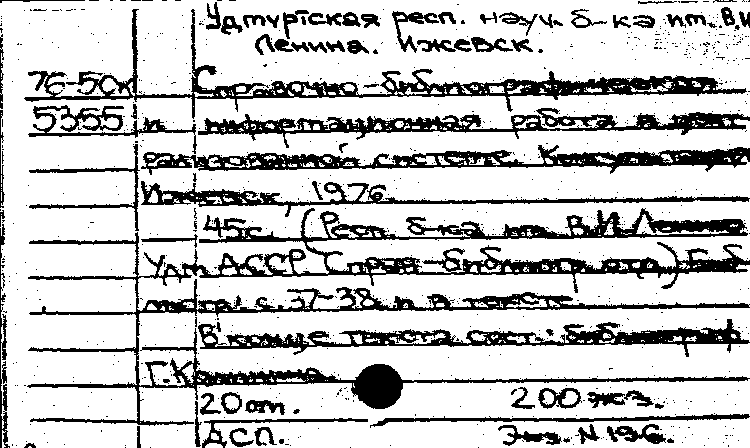 Удмуртская респ. науч. б-ка им. В.И
Ленина. Ижевск.
76-50к Справочно-библиографическая
5355 и информационная работа в цент
рализованной системе. Консультация
Ижевск, 1976.
45с. (Респ. б-ка им. В.И.Ленина
Удм АССР. Справ.-библиогр. отд.) Б-б
лиогр. с. 37-38. и в тексте
В конце текста сост.: библиограф
Г.Калинина.
20от. 200 экз.
ДСП. Экз. N 196.